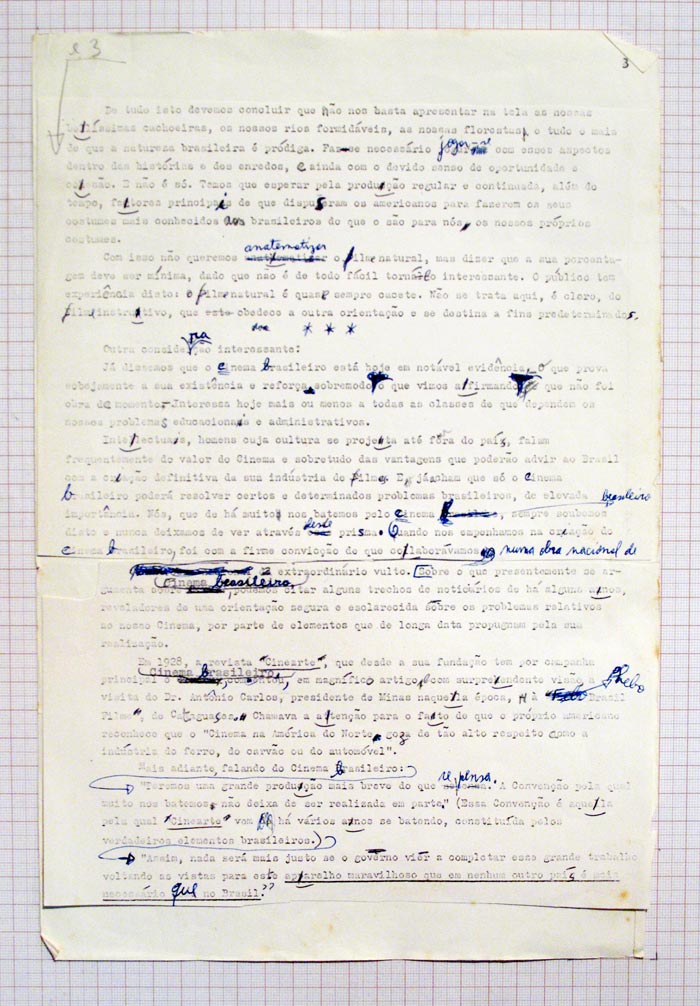 e 3
3
De tudo isto devemos concluir que não nos basta apresentar na tela as nossas
belíssimas cachoeiras, os nossos rios formidáveis, as nossas florestas, e tudo o mais
de que a natureza brasileira é pródiga. Faz-se necessário jogar-se com esses aspectos
dentro das histórias e dos enredos, e ainda com o devido senso de oportunidade e
ocasião. E não é só. Temos que esperar pela produção regular e continuada, além do
tempo, fatores principais de que dispuseram os americanos para fazerem os seus
costumes mais conhecidos aos brasileiros do que o são para nós, os nossos próprios
costumes.
anatematizar
Com isso não queremos o filme natural, mas dizer que a sua porcenta-
gem deve ser mínima, dado que não é de todo fácil torná-lo interessante. O público tem
experiência disto: o filme natural é quase sempre cacete. Não se trata aqui, é claro, do
filme instrutivo, que obedece a outra orientação e se destina a fins predeterminados.
* * *
ra
Outra consideração interessante:
Já dissemos que o cinema brasileiro está hoje em notável evidência, o que prova
sobejamente a sua existência e reforça sobremodo o que vimos afirmando que não foi
obra de momento. Interessa hoje mais ou menos a todas as classes de que dependem os
nossos problemas educacionais e administrativos.
Intelectuais, homens cuja cultura se projeta até fora do país, falam
frequentemente do valor do Cinema e sobretudo das vantagens que poderão advir ao Brasil
com a criação definitiva da sua indústria de filmes. E já acham que só o cinema
brasileiro poderá resolver certos e determinados problemas brasileiros, de elevada
importância. Nós, que de há muito nos batemos pelo cinema brasileiro, sempre soubemos
disto e nunca deixamos de ver através deste prisma. Quando nos empenhamos na criação do
cinema brasileiro, foi com a firme convicção de que colaborávamos numa obra nacional de
extraordinário vulto. Sobre o que presentemente se ar-
gumenta sobre Cinema brasileiro, podemos citar alguns trechos de noticários de há alguns anos,
reveladores de uma orientação segura e esclarecida sobre os problemas relativos
ao nosso Cinema, por parte de elementos que de longa data propugnam pela sua
realização.
Em 1928, a revista "Cinearte", que desde a sua fundação tem por campanha
principal o Cinema brasileiro, comentou, em magnífico artigo, com surpreendente visão a
visita do Dr. Antônio Carlos, presidente de Minas naquela época, à "Phebo Brasil
Filme", de Cataguases. Chamava a atenção para o fato de que o próprio americano
reconhece que o "Cinema na América do Norte goza de tão alto respeito como a
indústria do ferro, do carvão ou do automóvel".
Mais adiante, falando do Cinema brasileiro:
"Teremos uma grande produção mais breve do que se pensa. A Convenção pela qual
muito nos batemos, não deixa de ser realizada em parte." (Essa Convenção é aquela
pela qual "Cinearte" vem há vários anos se batendo, constituída pelos
verdadeiros elementos brasileiros.)
"Assim, nada será mais justo se o govêrno vier a completar esse grande trabalho
voltando as vistas para este aparelho maravilhoso que em nenhum outro país é mais
necessário que no Brasil."